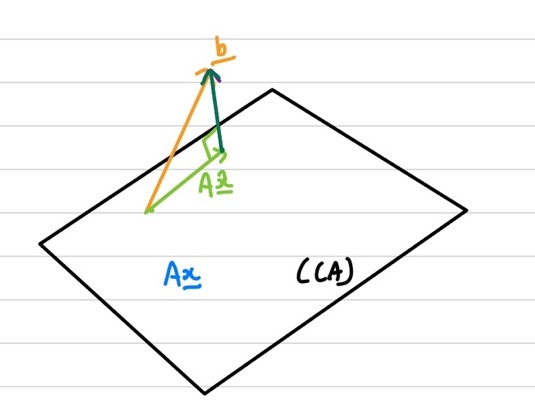 b
Ax̂
Ax
C(A)